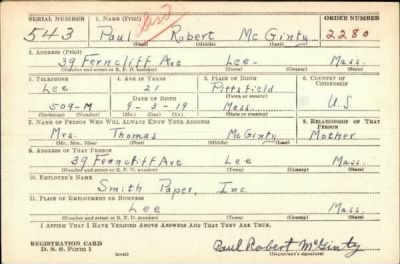 SERIAL NUMBER 1. NAME (Print) ORDER NUMBER
543 Paul Robert McGinty 2280
(First) (Middle) (Last)
2. ADDRESS (Print)
39 Ferncliff Ave Lee Mass.
(Number and street or R. F. D. number) (Town) (County) (State)
3. TELEPHONE 4. AGE IN YEARS 5. PLACE OF BIRTH 6. COUNTRY OF CITIZENSHIP
Lee 21 Pittsfield
(Town or county)
DATE OF BIRTH
509-M 9-3-19 Mass. U S
(Exchange) (Number) (Mo.) (Day) (Yr.) (State or country)
7. NAME OF PERSON WHO WILL ALWAYS KNOW YOUR ADDRESS 8. RELATIONSHIP OF THAT PERSON
Mrs. Thomas McGinty Mother
(Mr., Mrs., Miss) (First) (Middle) (Last)
9. ADDRESS OF THAT PERSON
39 Ferncliff Ave Lee Mass.
(Number and street or R. F. D. number) (Town) (County) (State)
10. EMPLOYER'S NAME
Smith Paper, Inc.
11. PLACE OF EMPLOYMENT OR BUSINESS
Lee Mass.
(Number and street or R. F. D. number) (Town) (County) (State)
I AFFIRM THAT I HAVE VERIFIED ABOVE ANSWERS AND THAT THEY ARE TRUE.
REGISTRATION CARD
D. S. S. Form 1 (over) Paul Robert McGinty
(Registrant's signature)